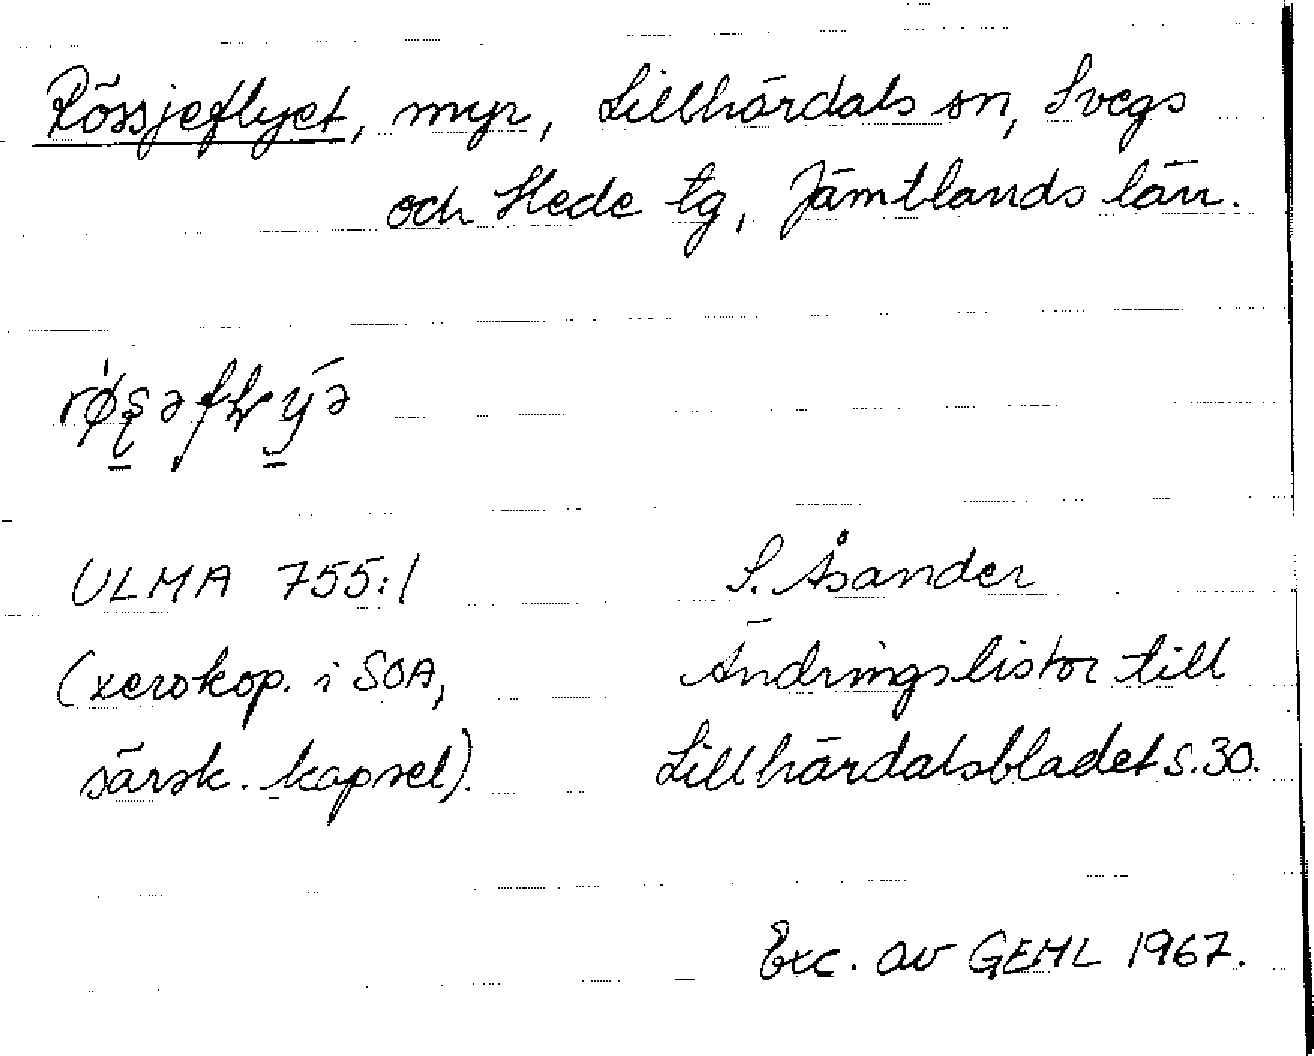 Rössjeflyet, myr, Lillhärdals sn, Svegs
och Hede tg, Jämtlands län.
ULMA 755:1
S. Åsander
(xerokop. i SOA,
Ändringslistor till
särsk. kapsel).
Lillhärdalsbladet s. 30.
Exc. av GEHL 1967.